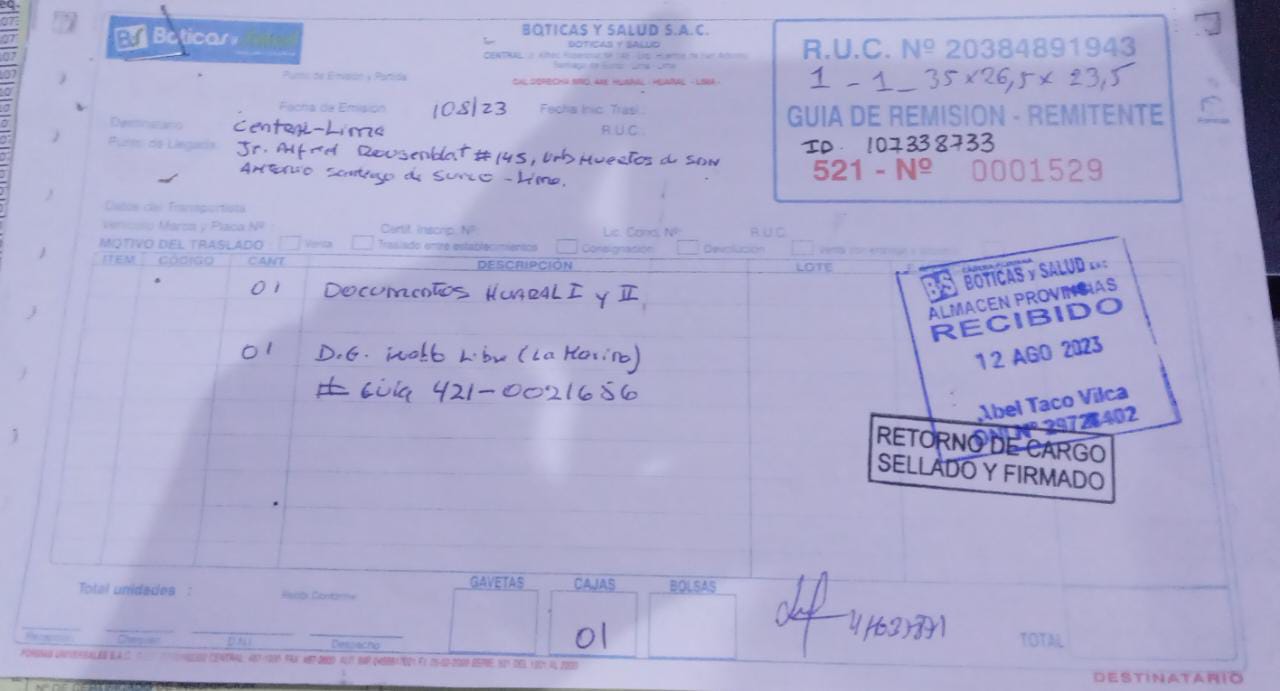 BS Boticas y Salud
BOTICAS Y SALUD S.A.C.
BOTICAS Y SALUD
CENTRAL
CAL. DERECHA NRO. 448 HUARAL - HUARAL - LIMA -
R.U.C. Nº 20384891943
1 - 1 _ 35 x 26,5 x 23,5
GUIA DE REMISION - REMITENTE
ID. 107338733
521 - Nº 0001529
Punto de Emisión y Partida
Fecha de Emisión 108/23 Fecha Inic. Trasl.:
Destinatario Central-Lima R.U.C.:
Punto de Llegada: Jr. Alfred # 145, Urb Huertos de San
Antonio Santiago de Surco - Lima.
Datos del Transportista
Vehículo Marca y Placa Nº Certif. Inscrip. Nº Lic. Cond. Nº: R.U.C.
MOTIVO DEL TRASLADO Venta Traslado entre establecimientos Consignación Devolución
ITEM CÓDIGO CANT. DESCRIPCIÓN LOTE
01 Documentos HUARAL I y II
01 D.G. (La Marina)
# Guia 421-0021686
BS BOTICAS y SALUD S.A.C
ALMACEN PROVINCIAS
RECIBIDO
12 AGO 2023
Abel Taco Vilca
RETORNO DE CARGO
SELLADO Y FIRMADO
Total unidades :
Recibí Conforme
GAVETAS CAJAS BOLSAS
01
Recepción Chequeo D.N.I. Despacho
TOTAL
DESTINATARIO